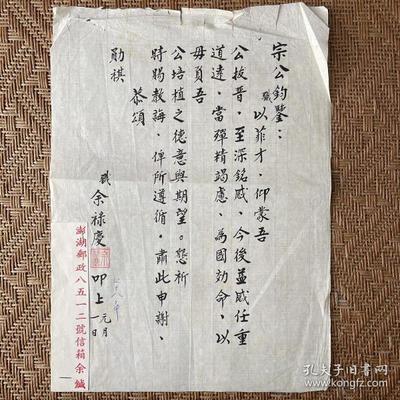 宗公鈞鑒：
職以菲才，仰蒙吾
公拔晉，至深銘感，今後益感任重
道遠，當殫精竭慮，為國効命，以
毋負吾
公培植之德意與期望。懇祈
時賜教誨，俾所遵循，肅此申謝、
恭頌
勛祺
職余祿慶叩上元月一日
澎湖郵政八五一二號信箱余緘
孔夫子旧书网